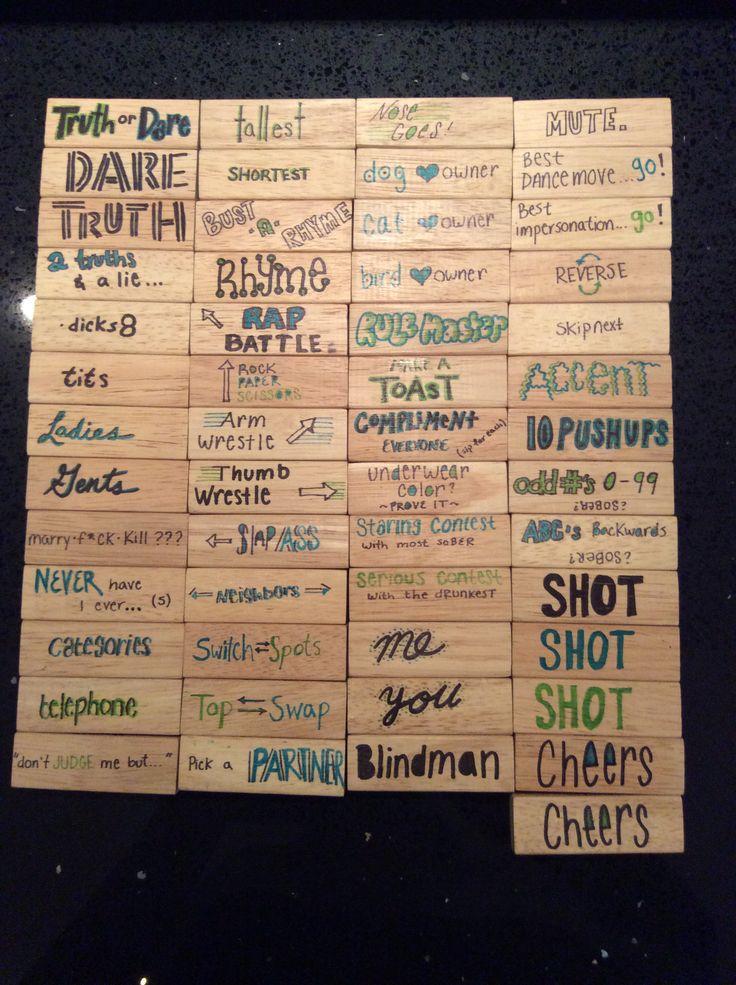 Truth or Dare
DARE
TRUTH
2 truths
& a lie...
·dicks 8
tits
Ladies
Gents
marry·f*ck·kill ???
NEVER have
I ever... (5)
categories
telephone
"don't JUDGE me but..."
tallest
SHORTEST
BUST
-A-
RHYME
Rhyme
RAP
BATTLE
ROCK
PAPER
SCISSORS
Arm
wrestle
Thumb
Wrestle
SlAP/ASS
NEIGHBORS
Switch Spots
Top Swap
Pick a PARTNER
Nose
Goes!
dog owner
cat owner
bird owner
RULE Master
MAKE A
TOAST
COMPLIMENT
EVERYONE (sip for each)
underwear
color?
~PROVE IT~
Staring contest
with most SOBER
serious contest
with the DRUNKEST
me
you
Blindman
MUTE.
Best
DANCE move...go!
Best
impersonation... go!
REVERSE
Skip next
ACCENT
10 PUSHUPS
odd #'s 0-99
SOBER?
ABC's Backwards
SOBER?
SHOT
SHOT
SHOT
Cheers
Cheers